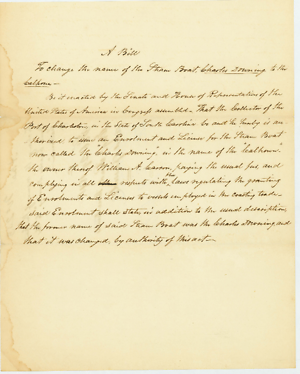 A Bill
To change the name of the Steam Boat, Charles Downing to the
Calhoun—
Be it enacted by the Senate and House of Representatives of the
United States of America in Congress assembled. That the Collector of the
Port of Charleston, in the State of South Carolina be and he hereby is au-
thorized to issue an Enrolment and License for the Steam Boat
now called the "Charles Downing", in the name of the "Calhoun"
the owner thereof William A. Carson, paying the usual fees and
complying in all respects with the laws regulating the granting
of Enrolments and Licenses to vessels employed in the coasting trade—
Said Enrolment shall state, in addition to the usual description
that the former name of said Steam Boat was the Charles Downing and
that it was changed, by authority of this act—